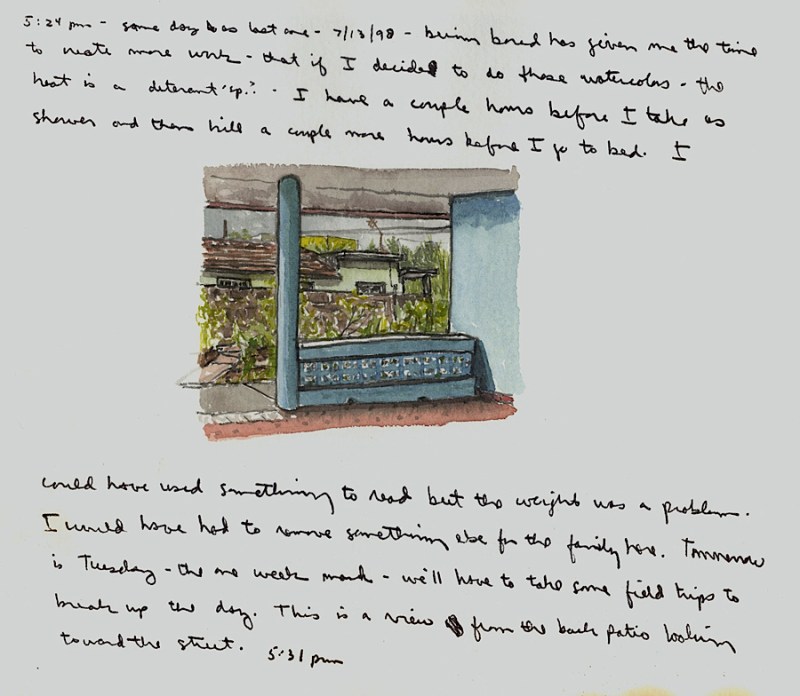 5:24 pm - same day as last one - 7/13/98 - being bored has given me the time
to create more work - that if I decided to do these watercolors - the
heat is a deterant 'sp.? - I have a couple hours before I take as
shower and then kill a couple more hours before I go to bed. I
could have used something to read but the weight was a problem.
I would have had to remove something else for the family here. Tommorrow
is Tuesday - the one week mark - we'll have to take some field trips to
break up the day. This is a view from the back patio looking
toward the street. 5:31 pm